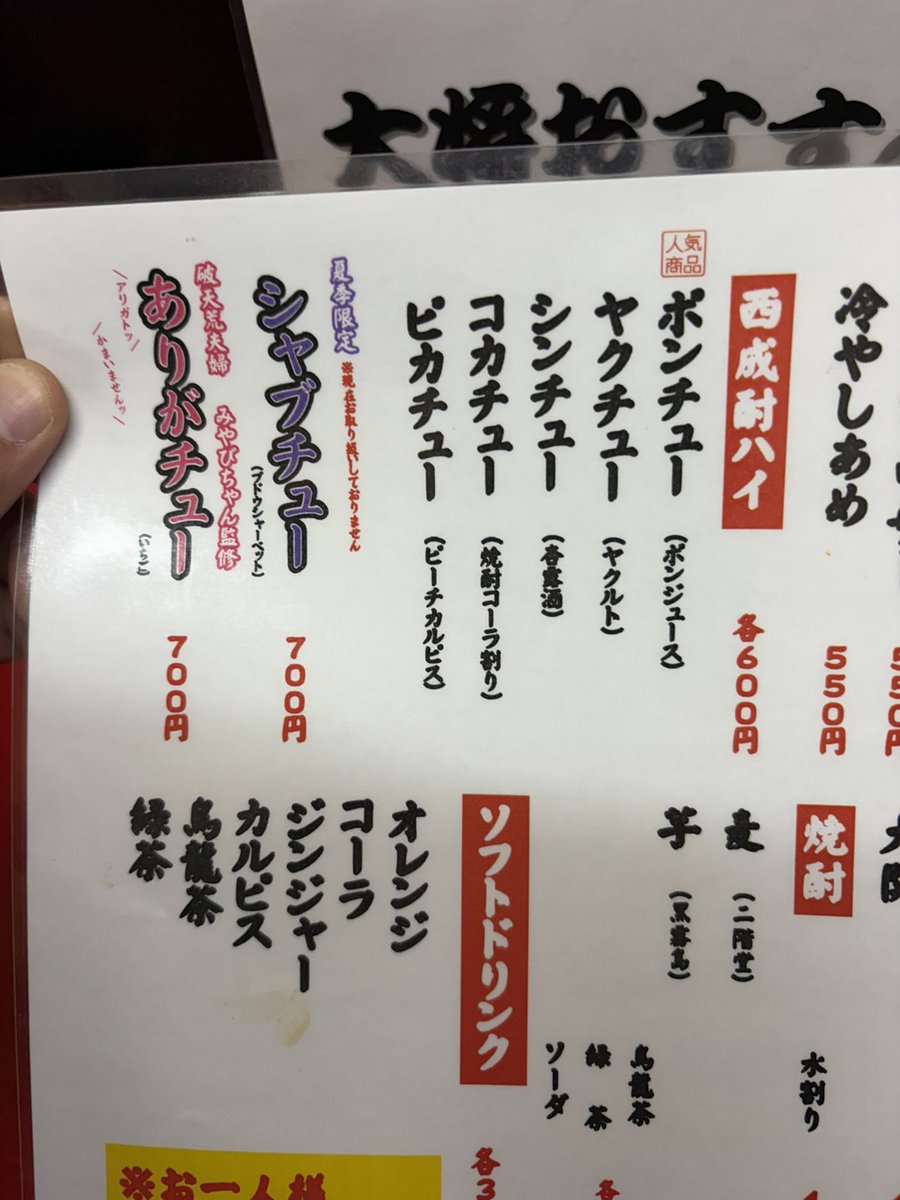 大将おすす
冷やしあめ
550円
西成酎ハイ
各600円
人気
商品
ポンチュー
(ポンジュース)
ヤクチュー
(ヤクルト)
シンチュー
(杏露酒)
コカチュー
(焼酎コーラ割り)
ピカチュー
(ピーチカルピス)
夏季限定
※現在お取り扱いしておりません
シャブチュー
(ブドウシャーベット)
700円
破天荒夫婦 みやびちゃん監修
ありがチュー
(いちご)
700円
\アリガトッ/
\かまいませんッ/
焼酎
麦
(二階堂)
芋
(黒霧島)
水割り
烏龍茶
緑茶
ソーダ
ソフトドリンク
各3
オレンジ
コーラ
ジンジャー
カルピス
烏龍茶
緑茶
※お一人様